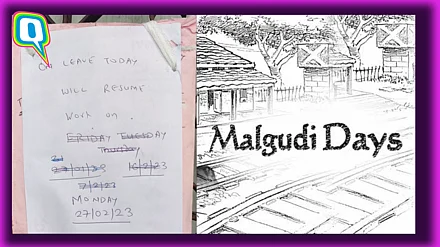 Q
On LEAVE TODAY
WILL RESUME
WORK on .
FRIDAY TUESDAY
Thursday
16/2/23
MONDAY
27/02/23
Malgudi Days